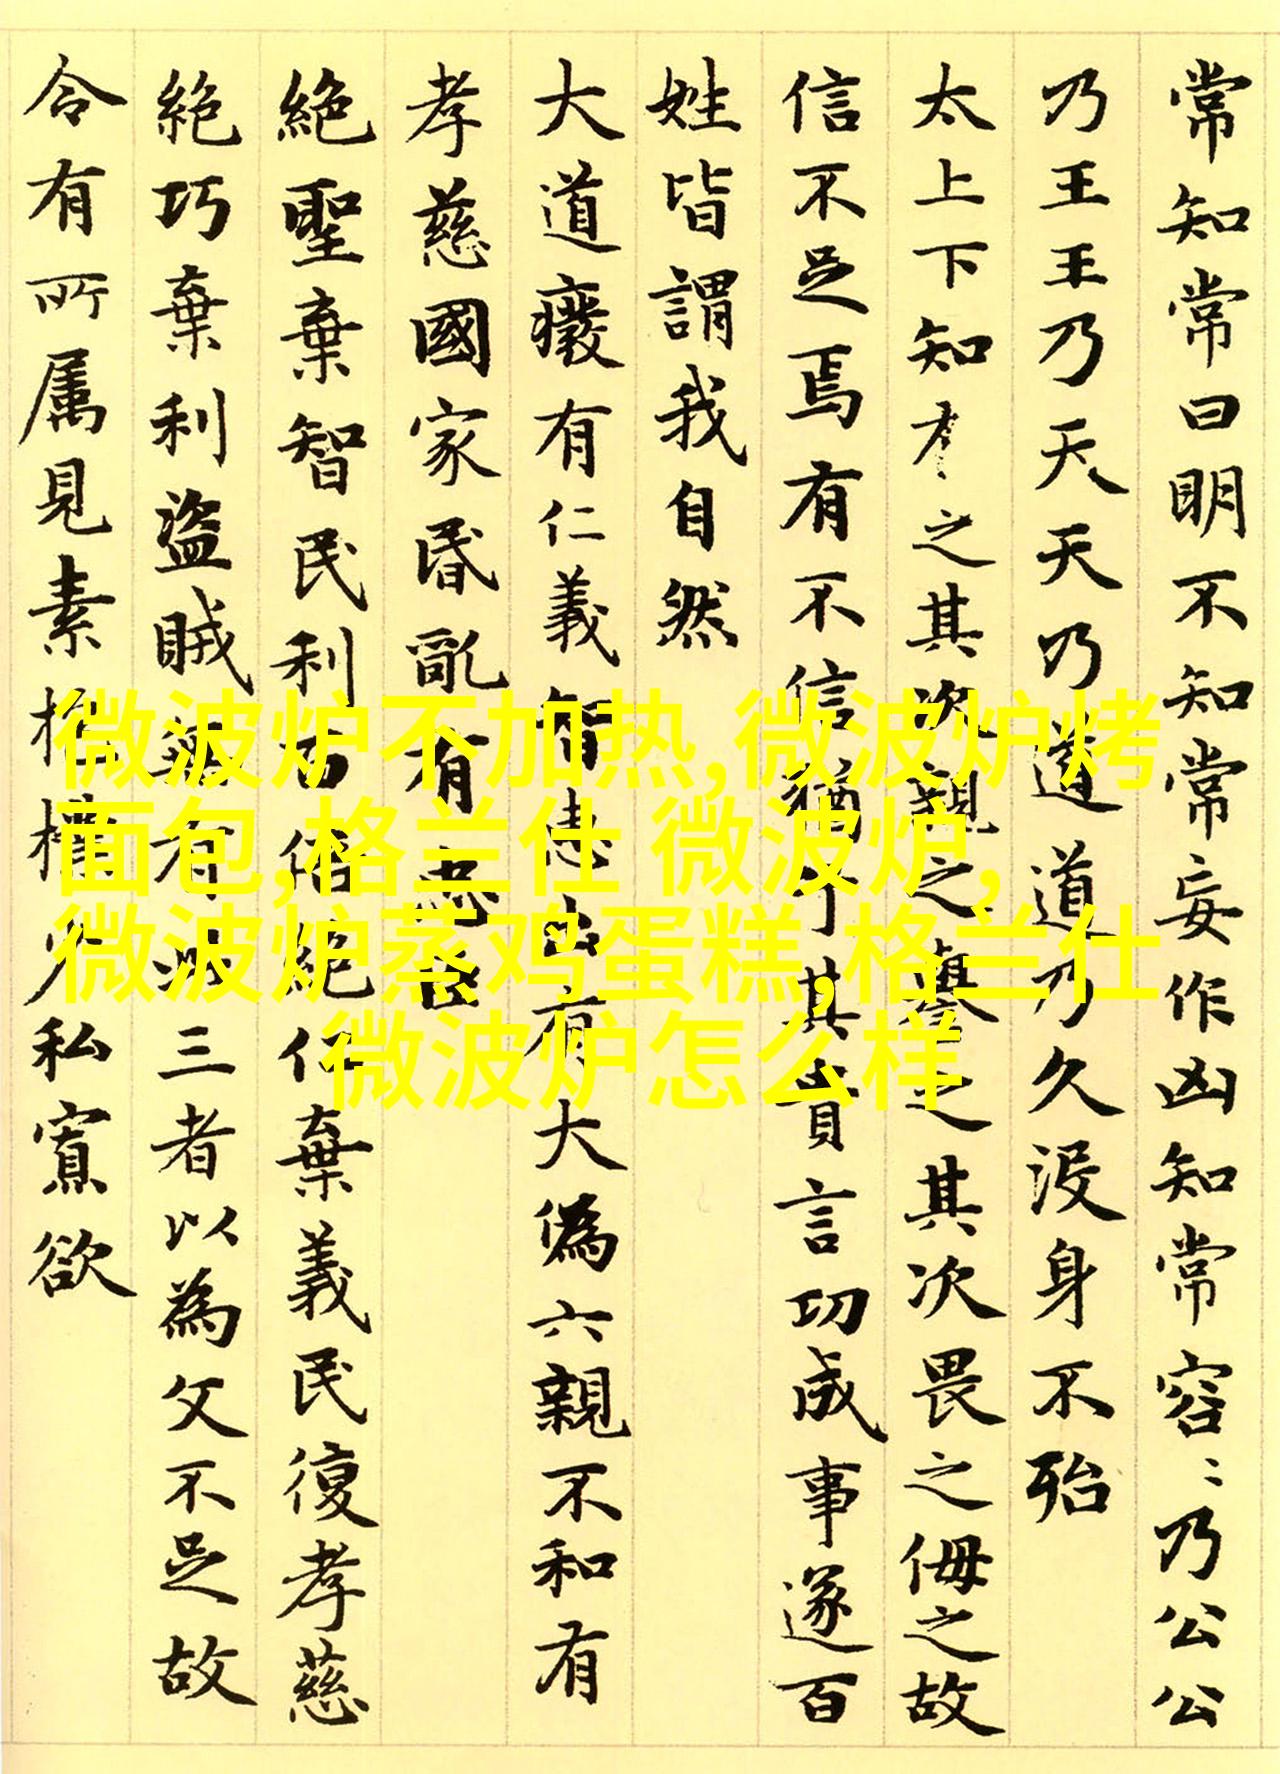 常知常曰明不知常妄作凶知常容〻乃公公
乃王王乃天天乃道道乃久没身不殆
太上下知有之其次親之譽之其次畏之侮之故
信不足焉有不信猶兮其貴言功成事遂百
姓皆謂我自然
大道癈有仁義智惠出有大偽六親不和有
孝慈國家昏亂有忠臣
絶聖棄智民利百倍絶仁棄義民復孝慈
絶巧棄利盗賊無有此三者以為文不足故
令有所属見素抱樸少私寡欲
微波炉不加热,微波炉烤
面包,格兰仕 微波炉,
微波炉蒸鸡蛋糕,格兰仕
微波炉怎么样